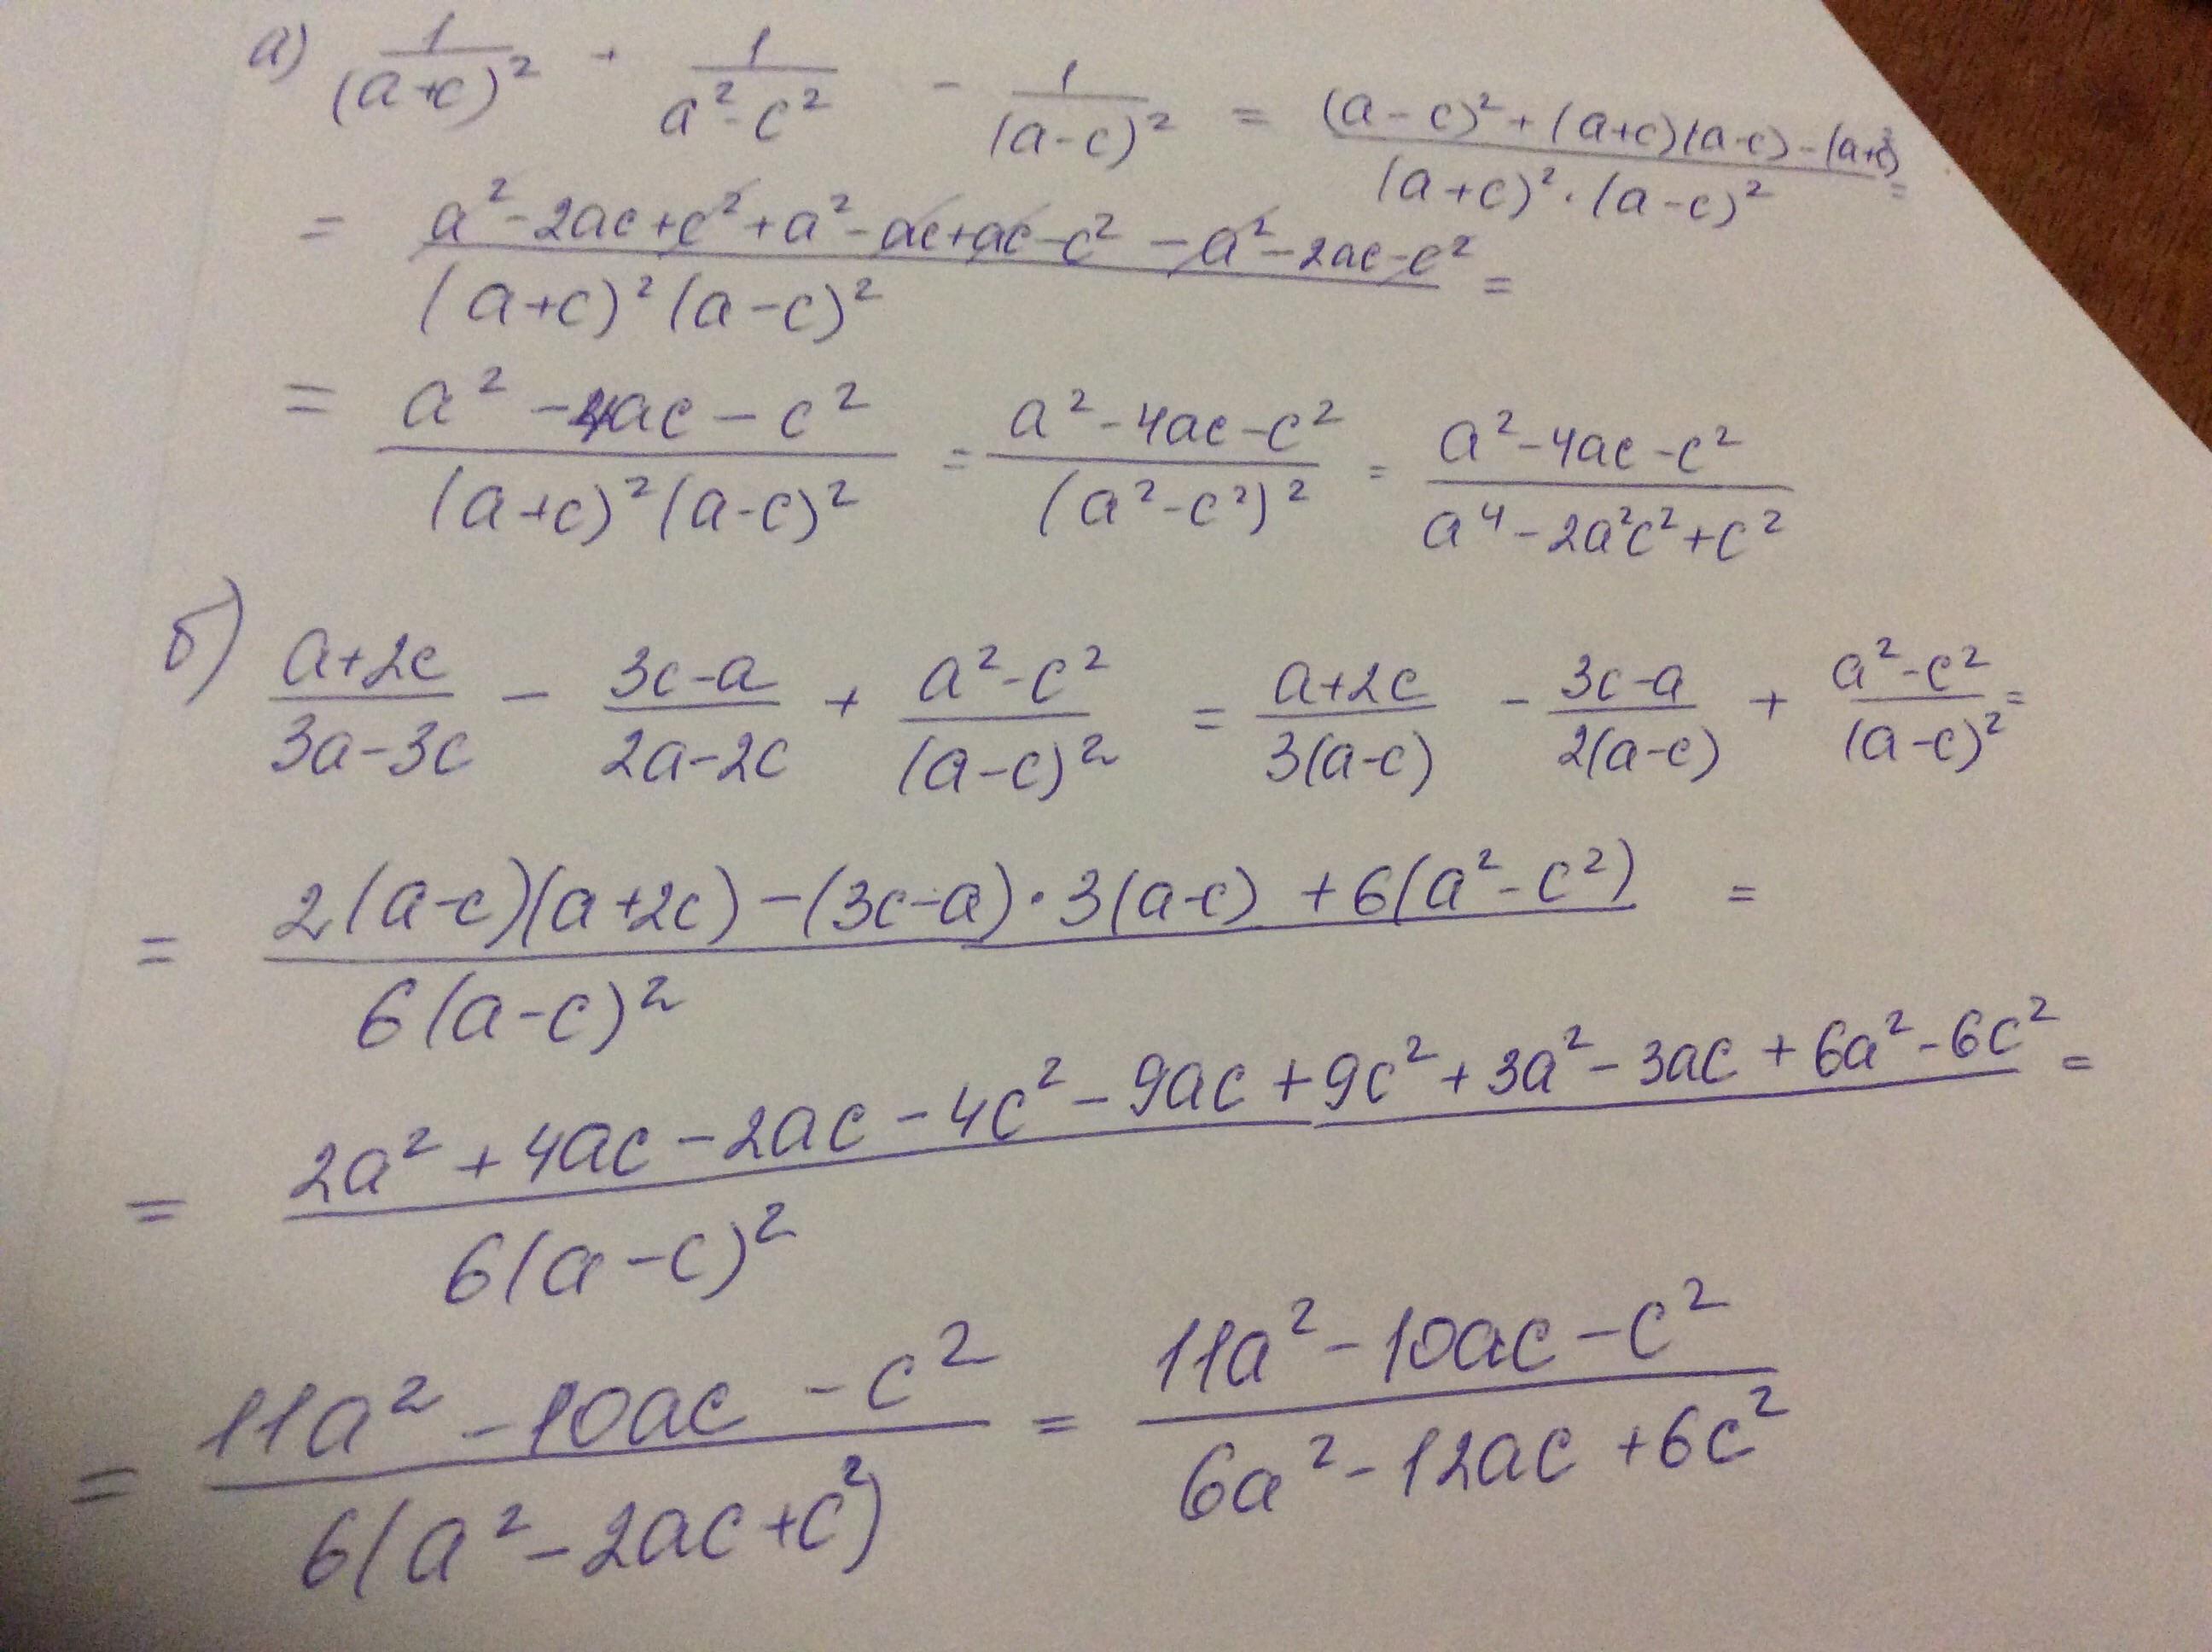 а) 1/(a+c)² + 1/(a²-c²) - 1/(a-c)² = ((a-c)² + (a+c)(a-c) - (a+c)²)/((a+c)²·(a-c)²) =
= (a² - 2ac + c² + a² - ac + ac - c² - a² - 2ac - c²)/((a+c)²(a-c)²) =
= (a² - 4ac - c²)/((a+c)²(a-c)²) = (a² - 4ac - c²)/((a²-c²)²) = (a² - 4ac - c²)/(a⁴ - 2a²c² + c²)
б) (a+2c)/(3a-3c) - (3c-a)/(2a-2c) + (a²-c²)/(a-c)² = (a+2c)/(3(a-c)) - (3c-a)/(2(a-c)) + (a²-c²)/(a-c)² =
= (2(a-c)(a+2c) - (3c-a)·3(a-c) + 6(a²-c²))/(6(a-c)²) =
= (2a² + 4ac - 2ac - 4c² - 9ac + 9c² + 3a² - 3ac + 6a² - 6c²)/(6(a-c)²) =
= (11a² - 10ac - c²)/(6(a² - 2ac + c²)) = (11a² - 10ac - c²)/(6a² - 12ac + 6c²)